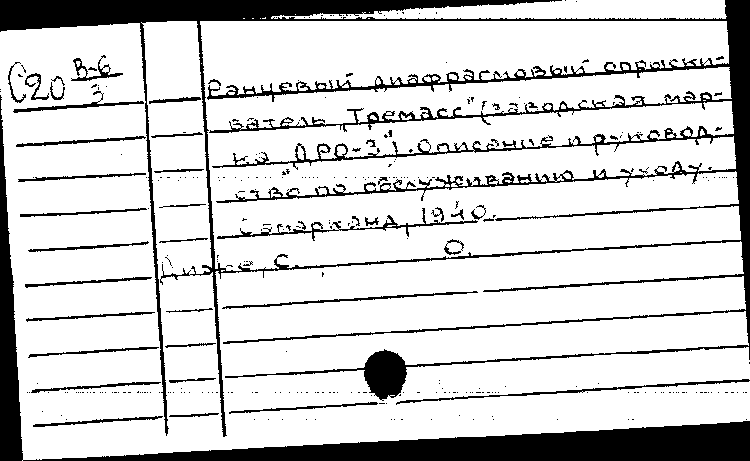 С20 В-6/3
Ранцевый диафрагмовый опрыски-
ватель „Тремасс" (заводская мар-
ка „ДРО-3"). Описание и руковод-
ство по обслуживанию и уходу.
Самарканд, 1940.
С. О.